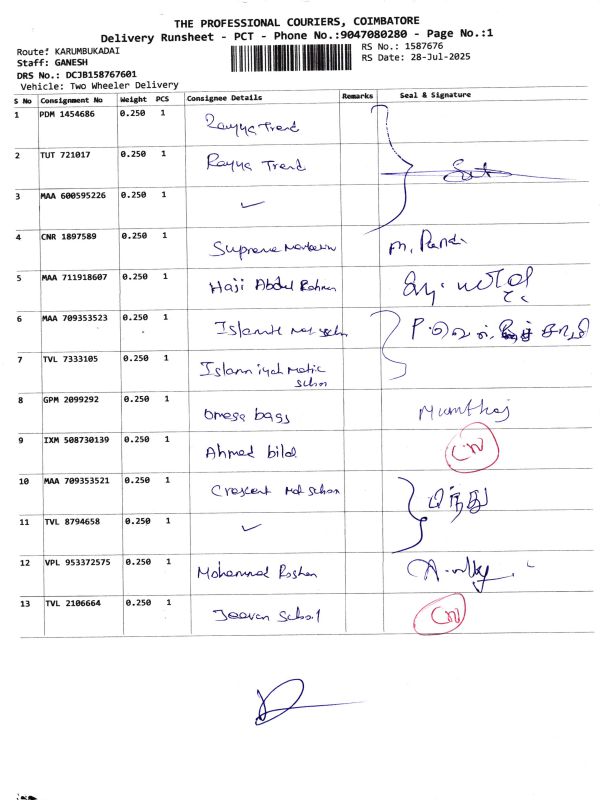 THE PROFESSIONAL COURIERS, COIMBATORE
Delivery Runsheet - PCT - Phone No.:9047080280 - Page No.:1
Route: KARUMBUKADAI
RS No.: 1587676
Staff: GANESH
RS Date: 28-Jul-2025
DRS No.: DCJB158767601
Vehicle: Two Wheeler Delivery
S No Consignment No Weight PCS Consignee Details Remarks Seal & Signature
1 PDM 1454686 0.250 1 Rayya Trend
2 TUT 721017 0.250 1 Rayya Trend
3 MAA 600595226 0.250 1
4 CNR 1897589 0.250 1 Supreme
5 MAA 711918607 0.250 1 Haji Abdul Rahman
6 MAA 709353523 0.250 1
7 TVL 7333105 0.250 1 Islamiyah Matic
School
8 GPM 2099292 0.250 1 Omega bags Mumthaj
9 IXM 508730139 0.250 1 Ahmed bilal CN
10 MAA 709353521 0.250 1 Crescent Mat School
11 TVL 8794658 0.250 1
12 VPL 953372575 0.250 1 Mohammed Roshan
13 TVL 2106664 0.250 1 Jeevan School CN